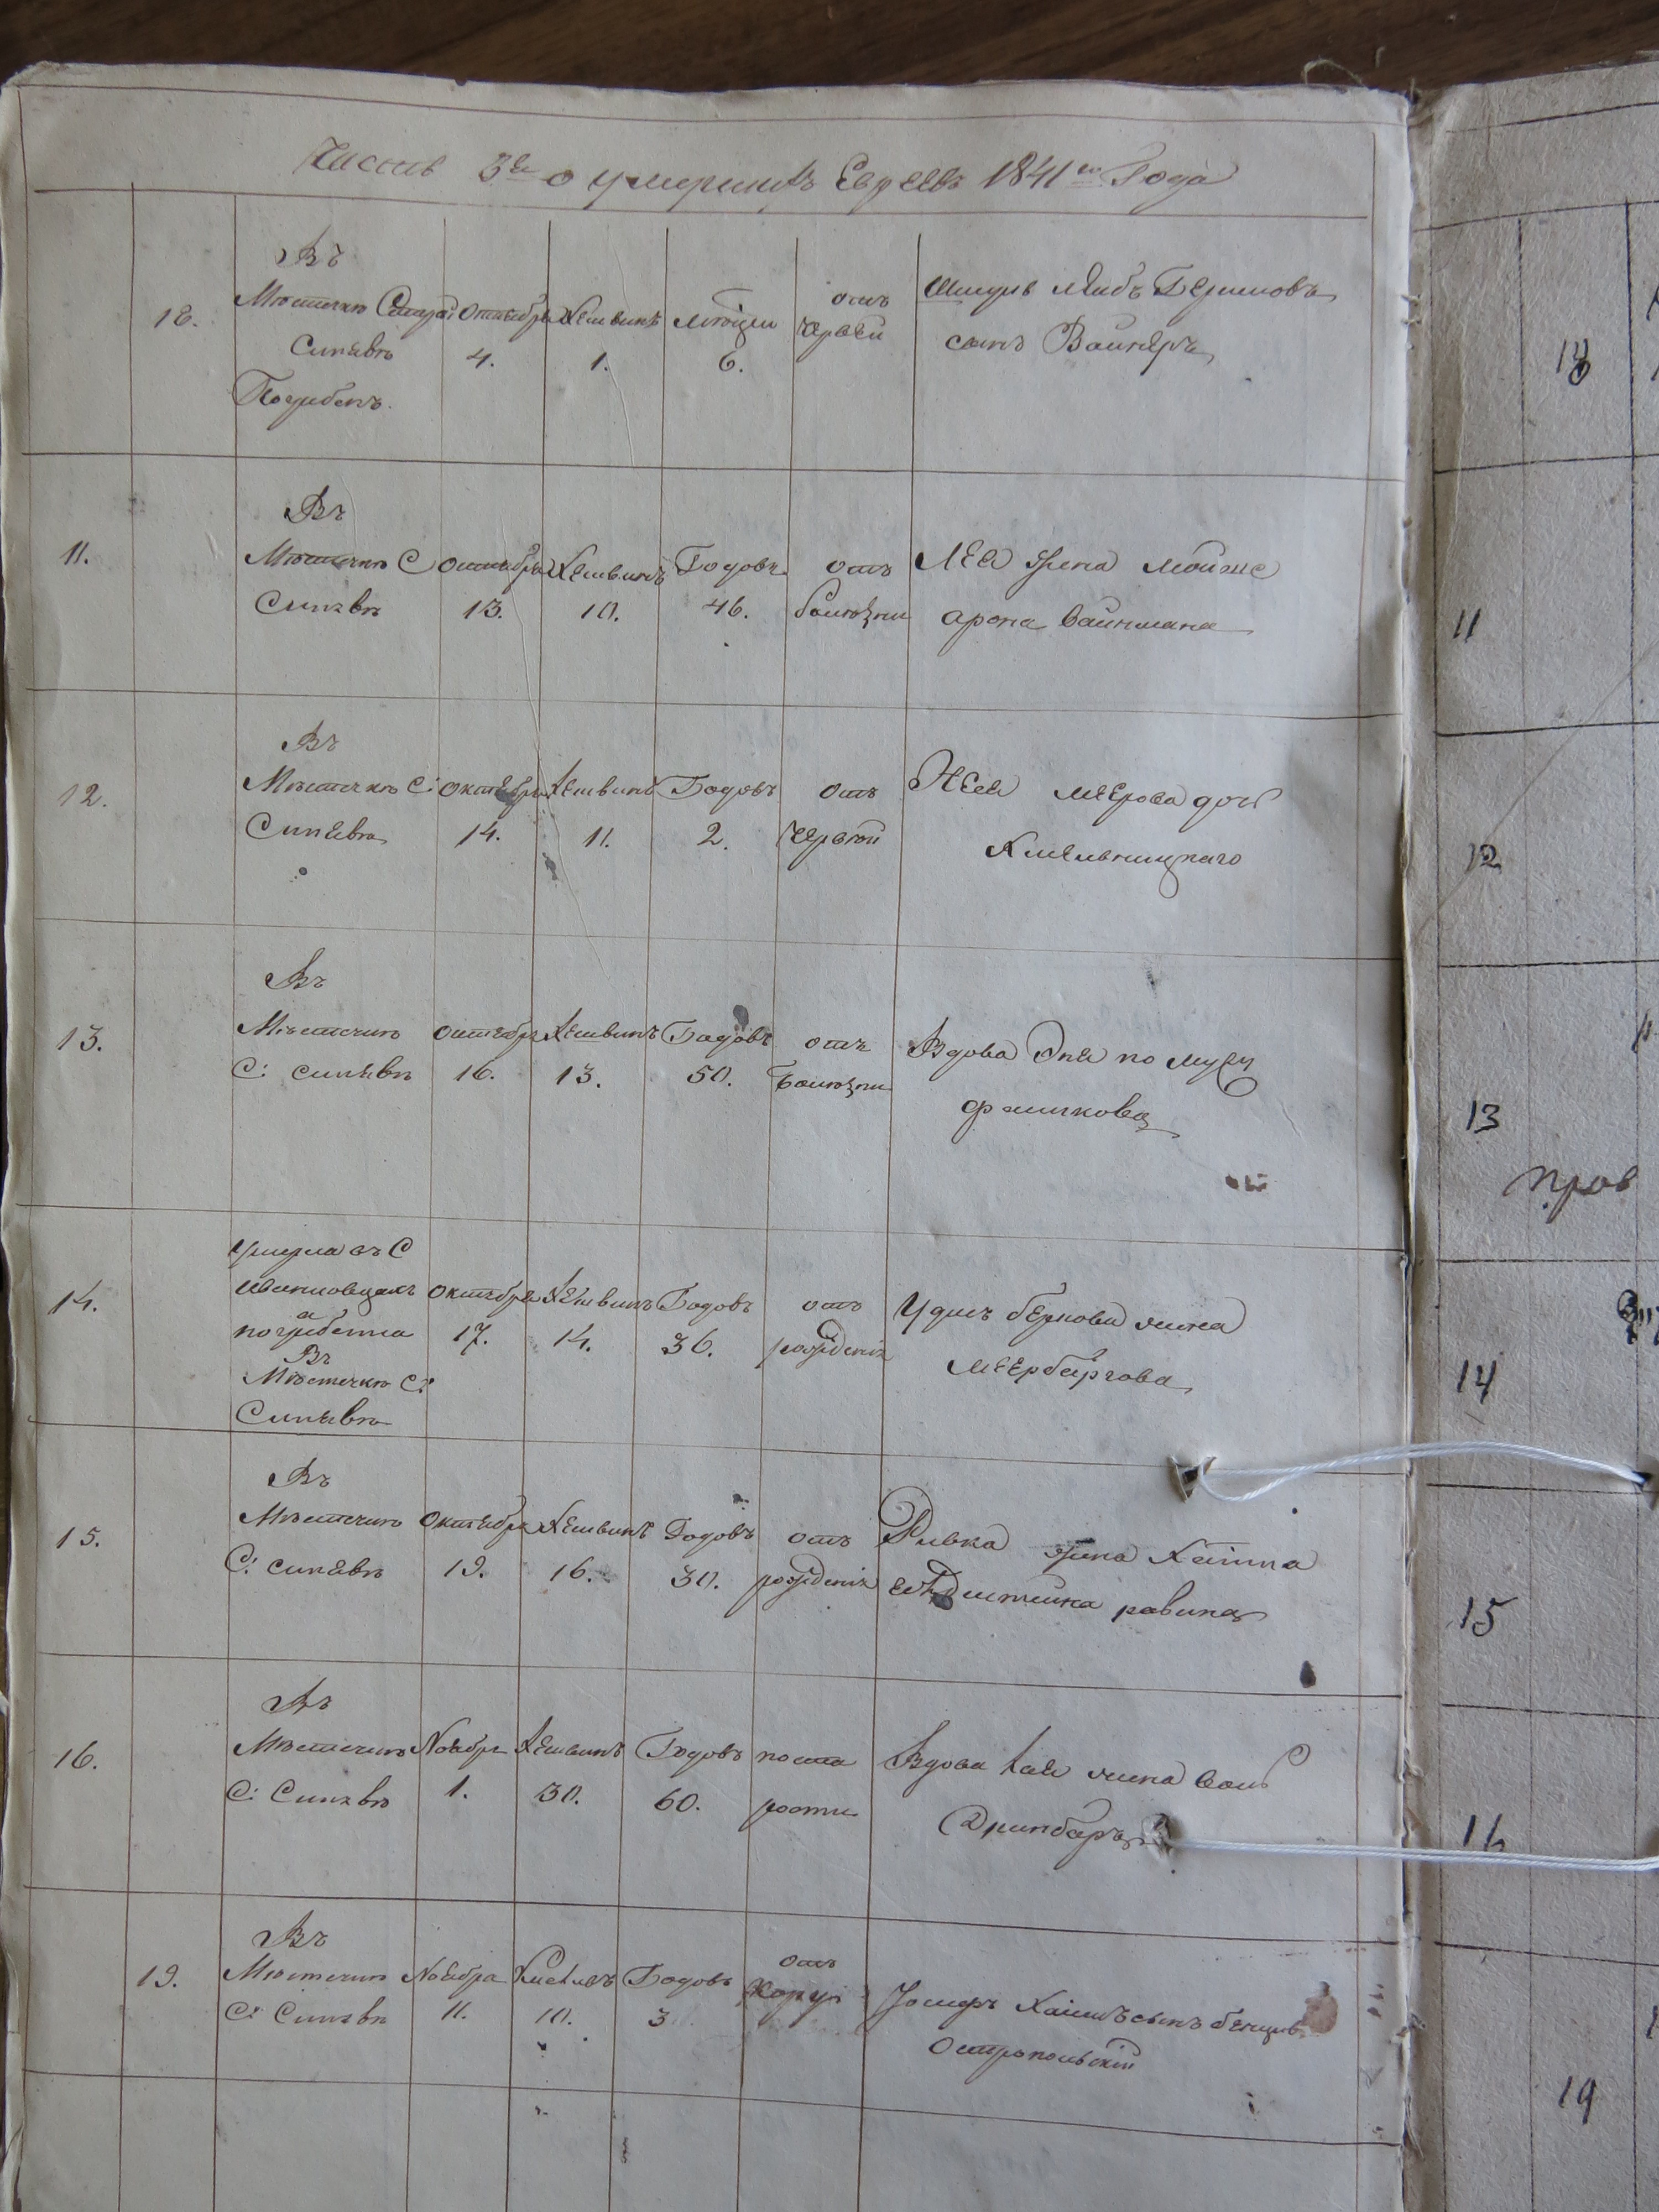 Часть 3я о умершихъ Евреевъ 1841го Года
Въ
18. Мѣстечкѣ Стары: Октября Хешвинъ мѣсяцы отъ Лейбъ Гершковъ
Синявѣ 4. 1. 6. червей сынъ Вайнеръ
Погребенъ.
Въ
11. Мѣстечкѣ С Октября Хешвинъ Годовъ отъ Лея жена Мойше
Синявѣ 13. 10. 46. болѣзни арона Вайнмана
Въ
12. Мѣстечкѣ С: Октября Хешвинъ Годовъ отъ Нея меерова дочь
Синявѣ 14. 11. 2. Червей Хмельницкаго
Въ
13. Мѣстечкѣ Октября Хешвинъ Годовъ отъ Вдова Эня по мужу
С: синявѣ 16. 13. 50. болѣзни
Умерла въ С
14. Иванковцахъ Октября Хешвинъ Годовъ отъ Удль беркова жена
а погребенна 17. 14. 36. рожденія меербергова
Въ
Мѣстечкѣ С:
Синявѣ
Въ
15. Мѣстечкѣ Октября Хешвинъ Годовъ отъ Ривка жена Хаима
С: синявѣ 19. 16. 30. рожденія равина
Въ
16. Мѣстечкѣ Ноября Хешвинъ Годовъ по ста Вдова Хая жена
С: Синявѣ 1. 30. 60. рости
Въ
19. Мѣстечкѣ Ноября Кислевъ Годовъ отъ Іосифъ Хаимъ сынъ
С: Синявѣ 11. 10. 3 Корчи Остропольскій
18
11
12
13
пров
14
15
16
19